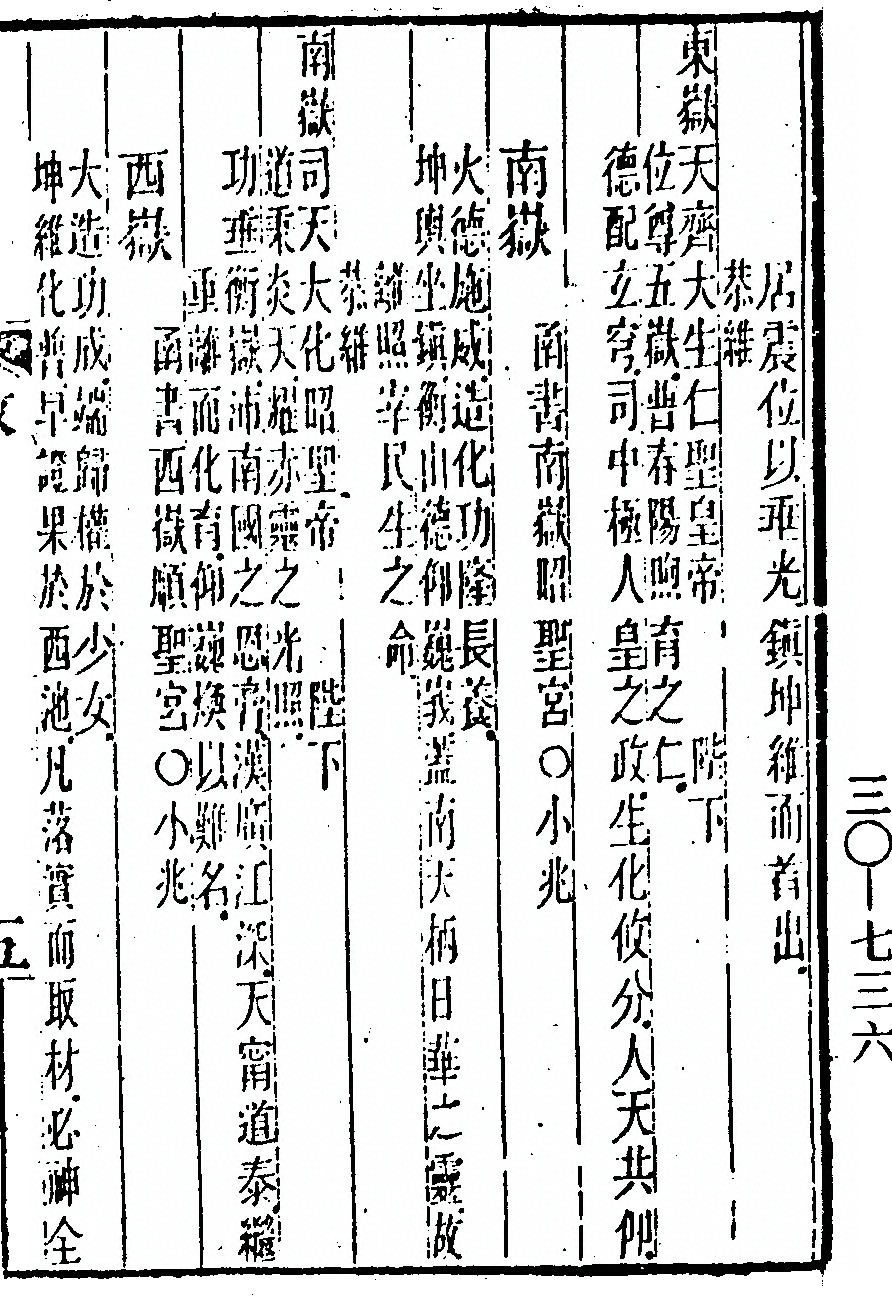 居震位以乘光鎮坤維而首出
恭維
東嶽天齊大生仁聖皇帝 陛下
位尊五嶽普春陽煦育之仁
德配玄穹司中極人皇之政生化攸分人天共仰
南嶽 函書南嶽昭聖宮○小兆
火德施威造化功隆長養
坤輿坐鎮衡山德仰巍峩蓋南天柄日華之靈故
離照宰民生之命
恭維
南嶽司天大化昭聖帝 陛下
道秉炎天燿赤靈之光照
功垂衡嶽沛南國之恩膏漢廣江深天甯道泰繼
重離而化育仰巍煥以難名
西嶽 函書西嶽順聖宮○小兆
大造功成端歸權於少女
坤維化普早證果於西池凡落實而取材必神全
三〇—七三六